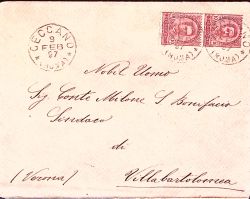 CECCANO
9
FEB
97
(ROMA)
Nobil Uomo
Sig. Conte Milone S. Bonifacio
Sindaco
di
(Verona) Villabartolomea